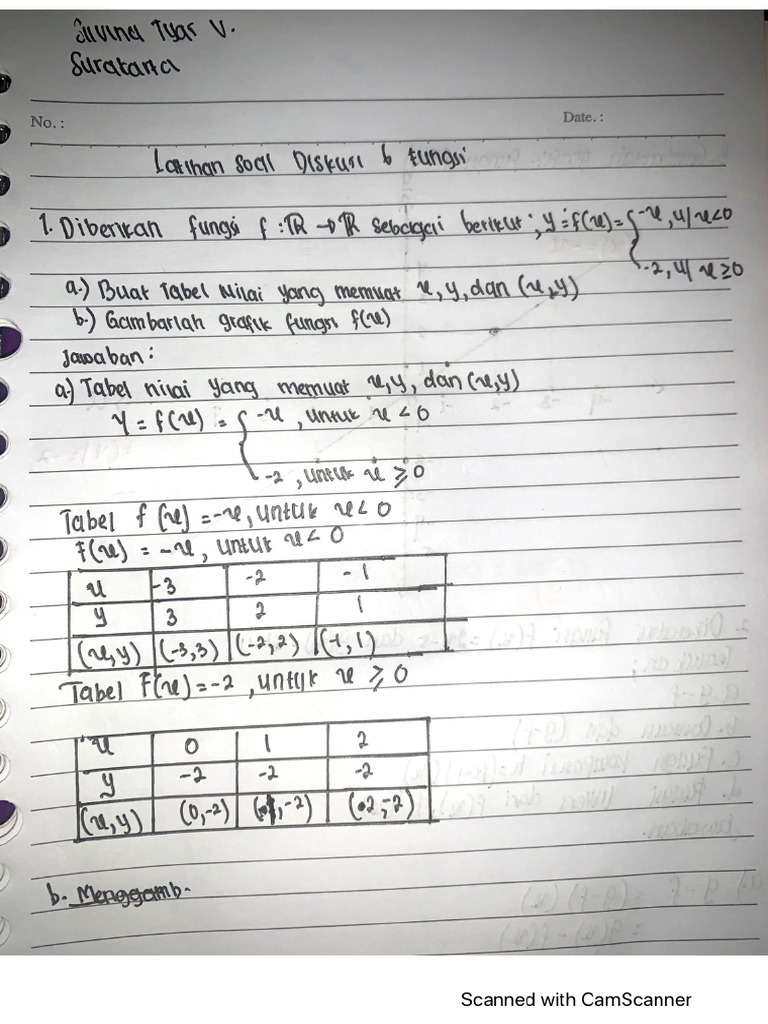 Silvina Tyas V.
Suratana
No. :
Date. :
Latihan Soal Diskusi 6 Fungsi
1. Diberikan fungsi f : ℝ → ℝ sebagai berikut; y = f(x) = { -x, u/ x<0
-2, u/ x ≥0
a.) Buat Tabel Nilai yang memuat x, y, dan (x,y)
b.) Gambarlah grafik fungsi f(x)
Jawaban :
a.) Tabel nilai yang memuat x,y, dan (x,y)
y = f(x) = { -x , untuk x < 0
-2 , untuk x ≥ 0
Tabel f (x) = -x, untuk x < 0
f(x) = -x , untuk x < 0
x -3 -2 -1
y 3 2 1
(x,y) (-3,3) (-2,2) (-1, 1)
Tabel f(x) = -2 , untuk x ≥ 0
x 0 1 2
y -2 -2 -2
(x,y) (0,-2) (1,-2) (2,-2)
b. Menggamb.
Scanned with CamScanner